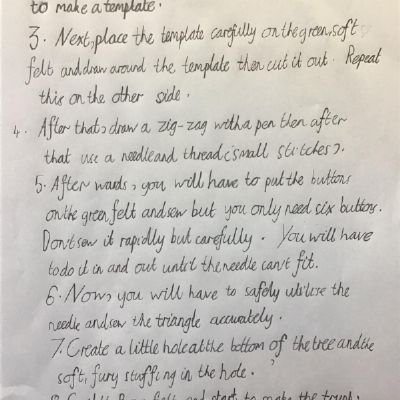 to make a template.
3. Next, place the template carefully on the green, soft
felt and draw around the template then cut it out. Repeat
this on the other side.
4. After that, draw a zig-zag with a pen then after
that use a needle and thread (small stitches).
5. After wards, you will have to put the buttons
on the green felt and sew but you only need six buttons.
Dont sew it rapidly but carefully. You will have
to do it in and out until the needle can't fit.
6. Now, you will have to safely utilise the
needle and sew the triangle accurately.
7. Create a little hole at the bottom of the tree and the
soft, fury stuffing in the hole.
felt and start to make the trunk.